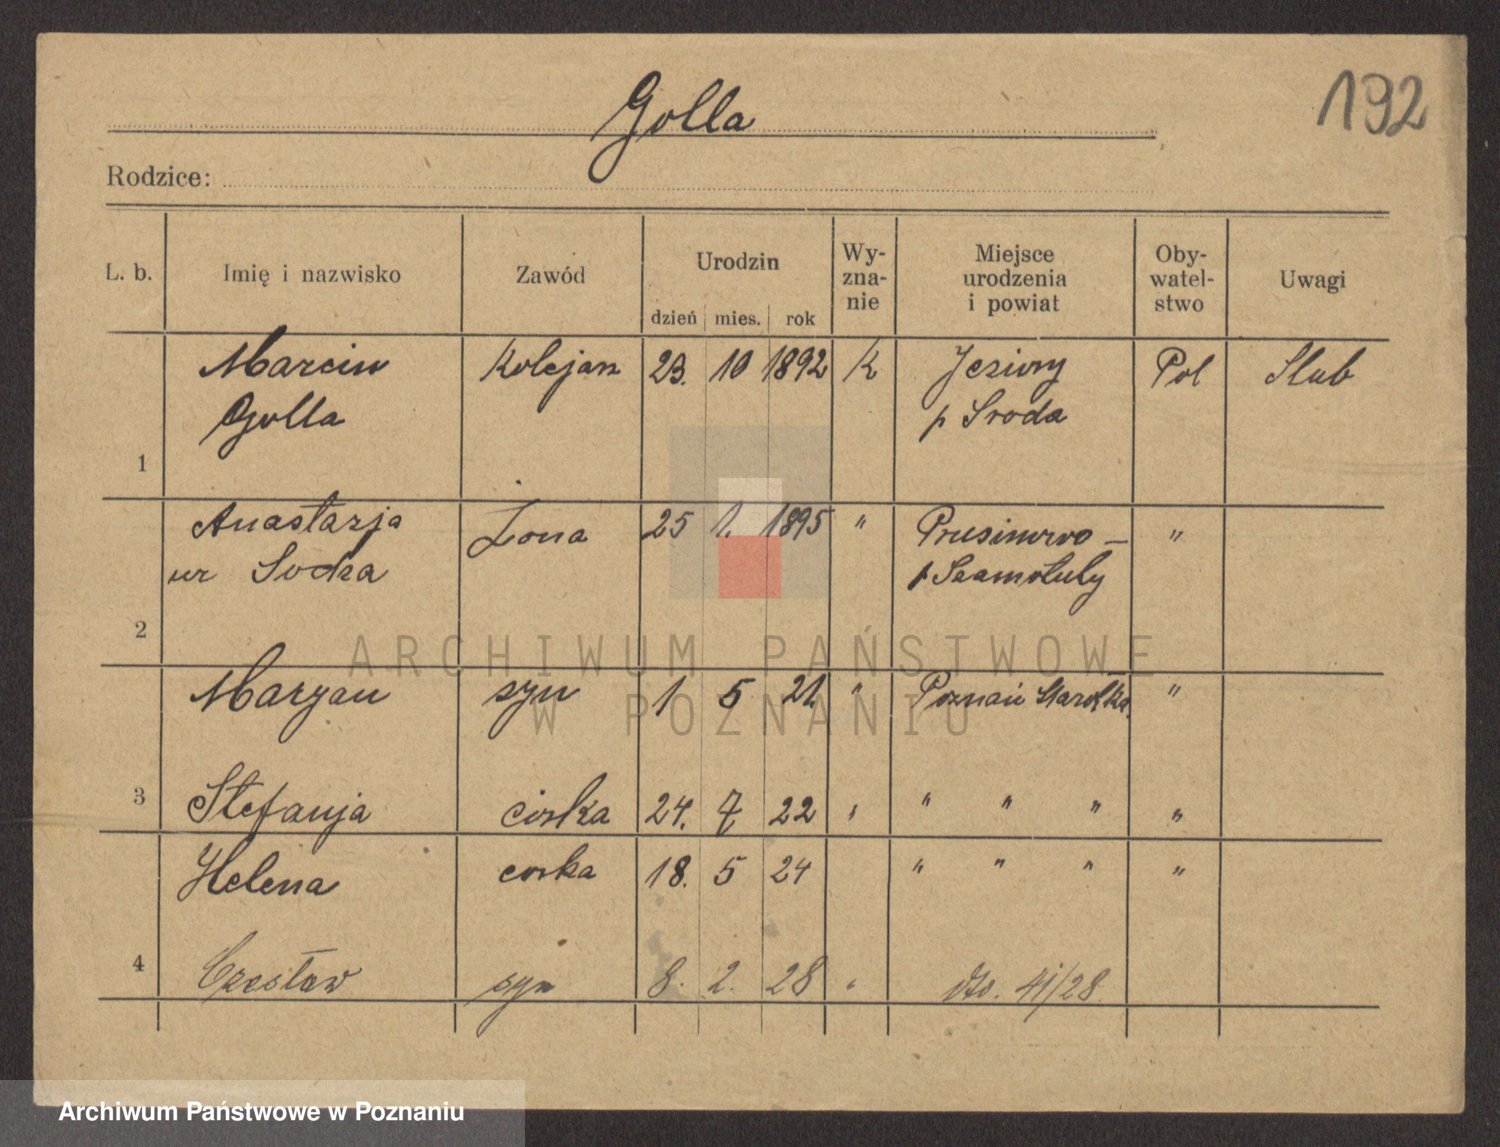 Golla
192
Rodzice:
L. b. Imię i nazwisko Zawód Urodzin dzień mies. rok Wy-zna-nie Miejsce urodzenia i powiat Oby-watel-stwo Uwagi
Marcin Kolejarz 23. 10 1892 K Jeziory Pol Slub
Golla p Sroda
1
Anastazja Zona 25 1. 1895 " Prusinowo –
ur Sodza p Szamotuly
2
Maryan syn 1 5 21. " Poznań Starołka "
3 Stefanja corka 24. 7 22 " " " " "
Helena corka 18. 5 24 " " " "
4 Czesław syn 8. 2. 28 " dto. 41/28
ARCHIWUM PAŃSTWOWE
W POZNANIU
Archiwum Państwowe w Poznaniu